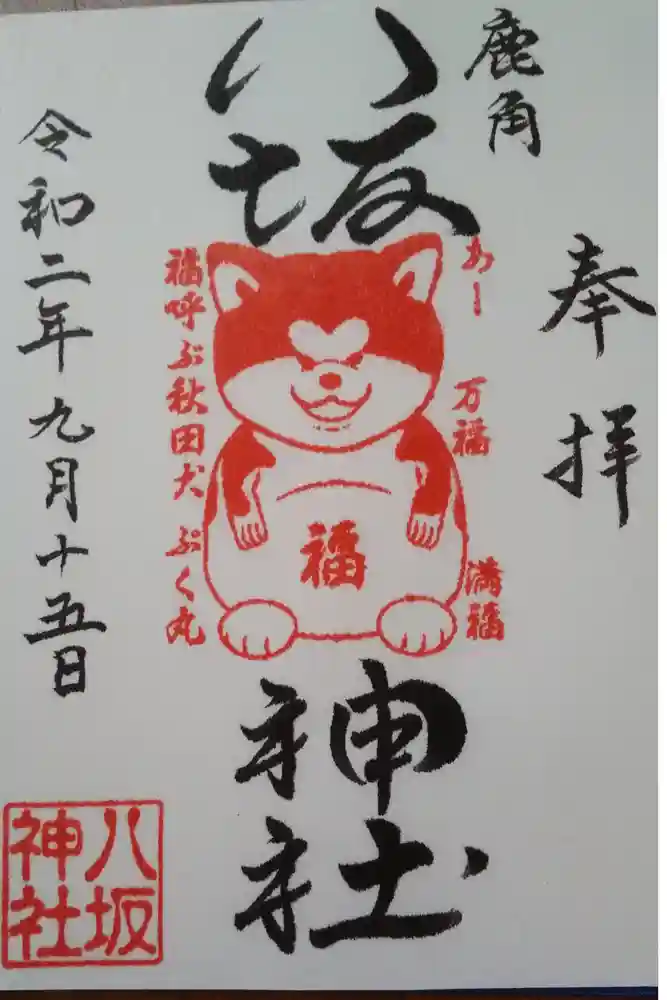 奉拝
鹿角
八坂
あー
万福
満福
福
福呼ぶ秋田犬ぶく丸
神社
令和二年九月十五日
八坂
神社